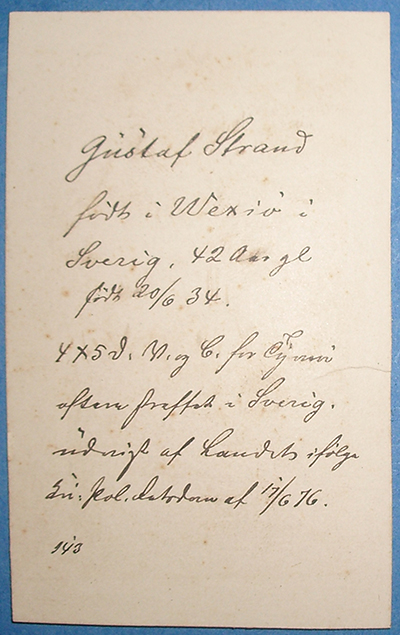 Gustaf Strand
født i Wexiö i
Sverig, 42 Aar gl
født 20/6 34.
4 x 5 d. V. og B. for Tyveri
oftere straffet i Sverig.
udvist af Landet ifølge
Pol. af 17/6 76.
143